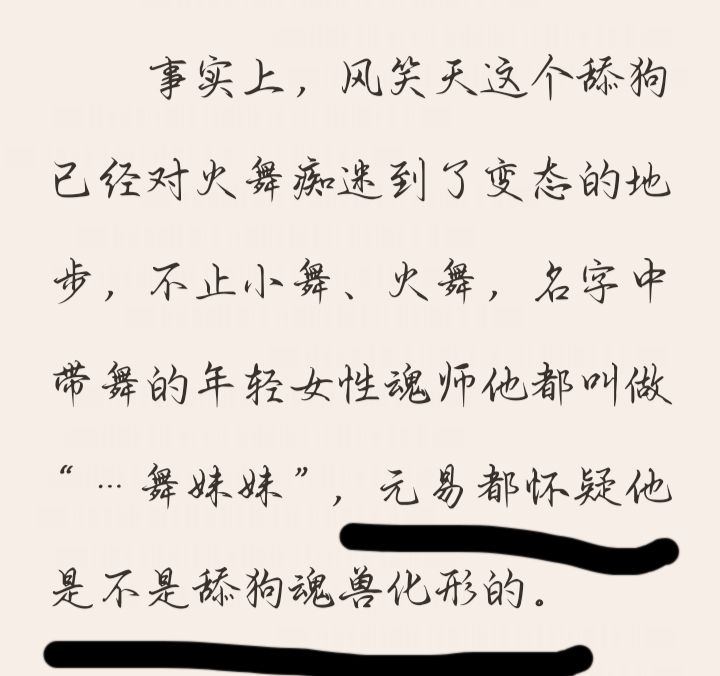 事实上，风笑天这个舔狗
已经对火舞痴迷到了变态的地
步，不止小舞、火舞，名字中
带舞的年轻女性魂师他都叫做
“…舞妹妹”，元易都怀疑他
是不是舔狗魂兽化形的。